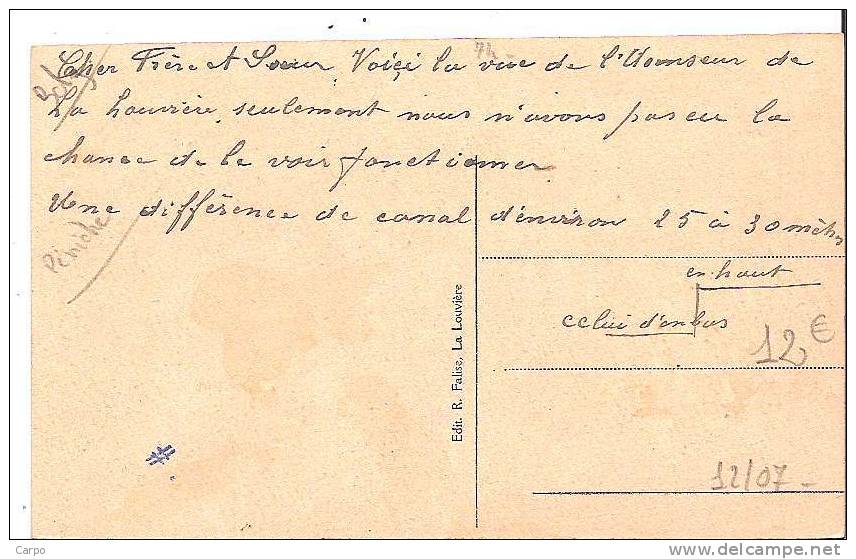 Cher Frère et Soeur Voiçi la vue de l'Asenseur de
La Louvière, seulement nous n'avons pas eu la
chance de le voir fonctionner
Une différence de canal d'environ 25 à 30 mètres
Péniche
en haut
celui d'en bas
12€
Edit. R. Falise, La Louvière
12/07 -
Carpo
www.delcampe.net